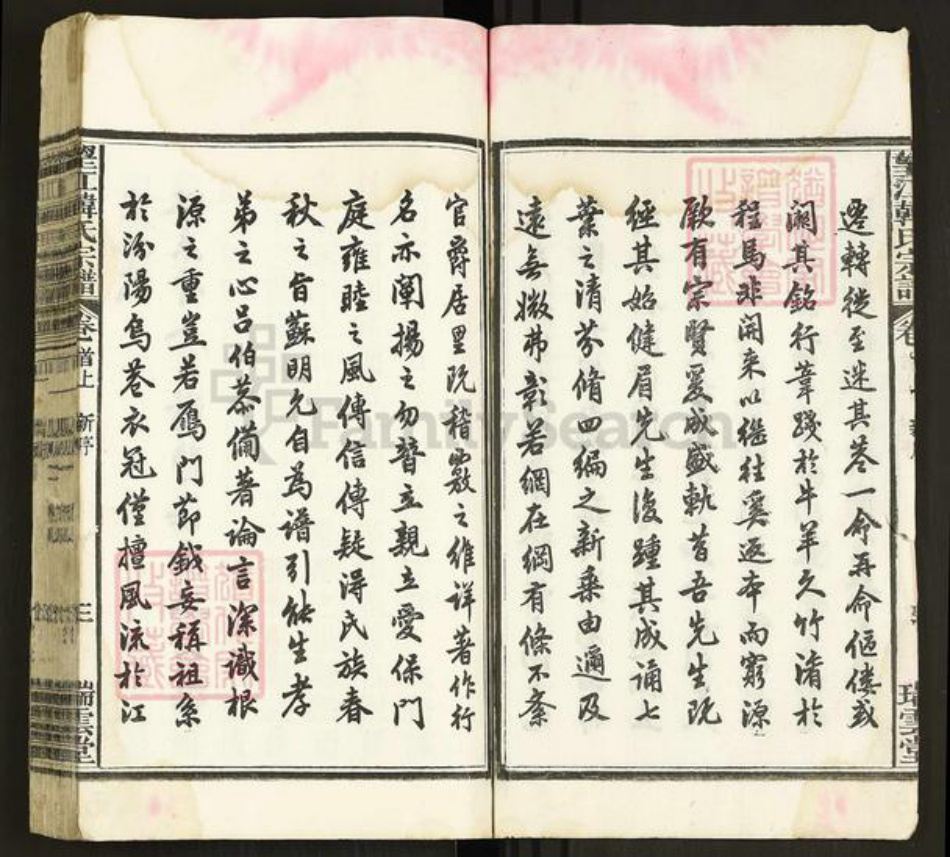 遷轉從至迷其巷一命再命傴僂或
闕其銘行葦踐於牛羊久竹湑於
程馬非開來以繼往奚返本而窮源
厥有宗賢爰成盛軌昔吾先生既
經其始健眉先生復踵其成誦七
葉之清芬脩四編之新乘由邇及
遠無微弗彰若網在綱有條不紊
官爵居里既稽覈之維詳著作行
名亦闡揚之勿替立親立愛保門
庭雍睦之風傳信傳疑得氏族春
秋之旨蘇明允自為譜引能生孝
弟之心呂伯恭備著論言深識根
源之重豈若鴈門節鉞妄稱祖系
於汾陽烏巷衣冠僅擅風流於江
望江韓氏宗譜
卷首上
新序
三
瑞雲堂
FamilySearch